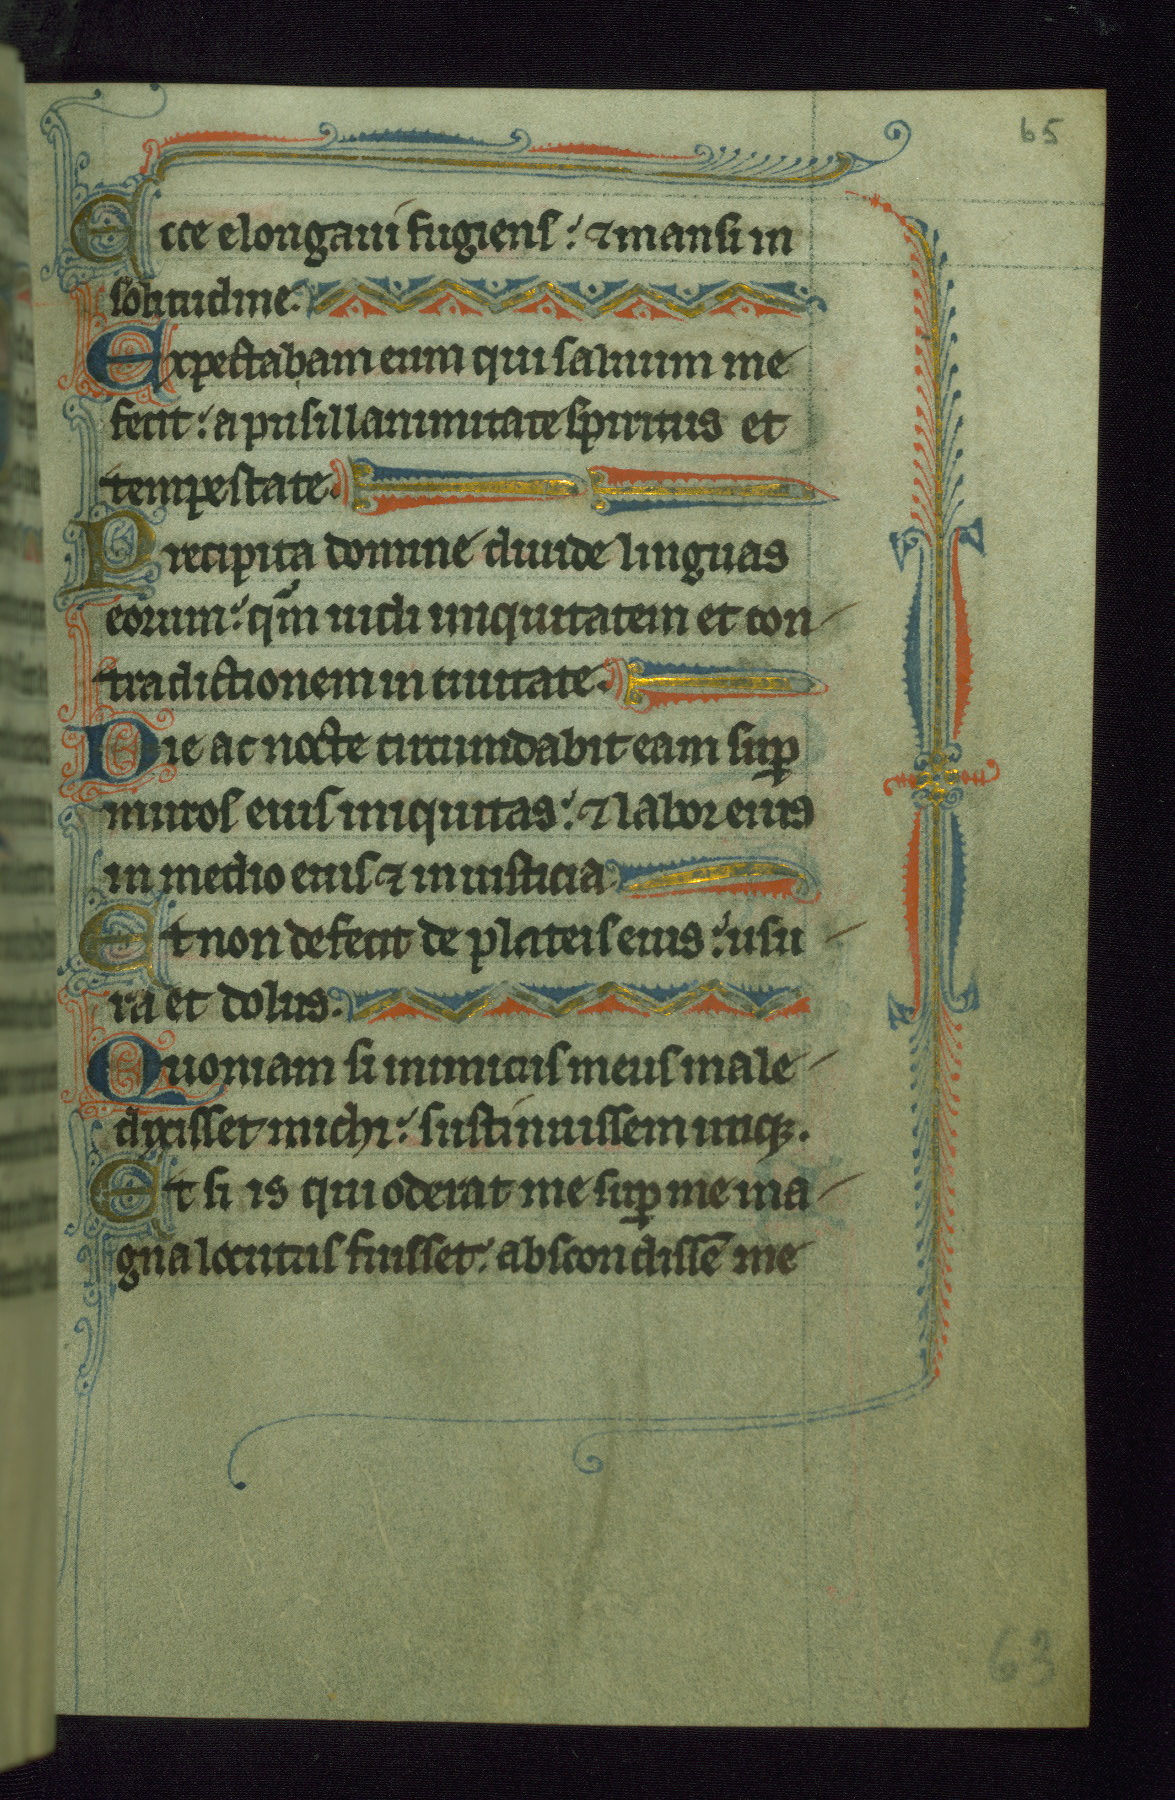 65
Ecce elongaui fugiens: ⁊ mansi in
solitudine.
Expectabam eum qui saluum me
fecit: a pusillanimitate spiritus et
tempestate.
Precipita domine diuide linguas
eorum: qm̄ uidi iniquitatem et con
tradictionem in ciuitate.
Die ac nocte circumdabit eam suꝑ
muros eius iniquitas: ⁊ labor eius
in medio eius ⁊ iniusticia
Et non defecit de plateis eius: usu
ra et dolus.
Quoniam si inimicus meus male
dixisset michi: sustinuissem utiqꝫ.
Et si is qui oderat me suꝑ me ma
gna locutus fuisset: abscondissē me
63